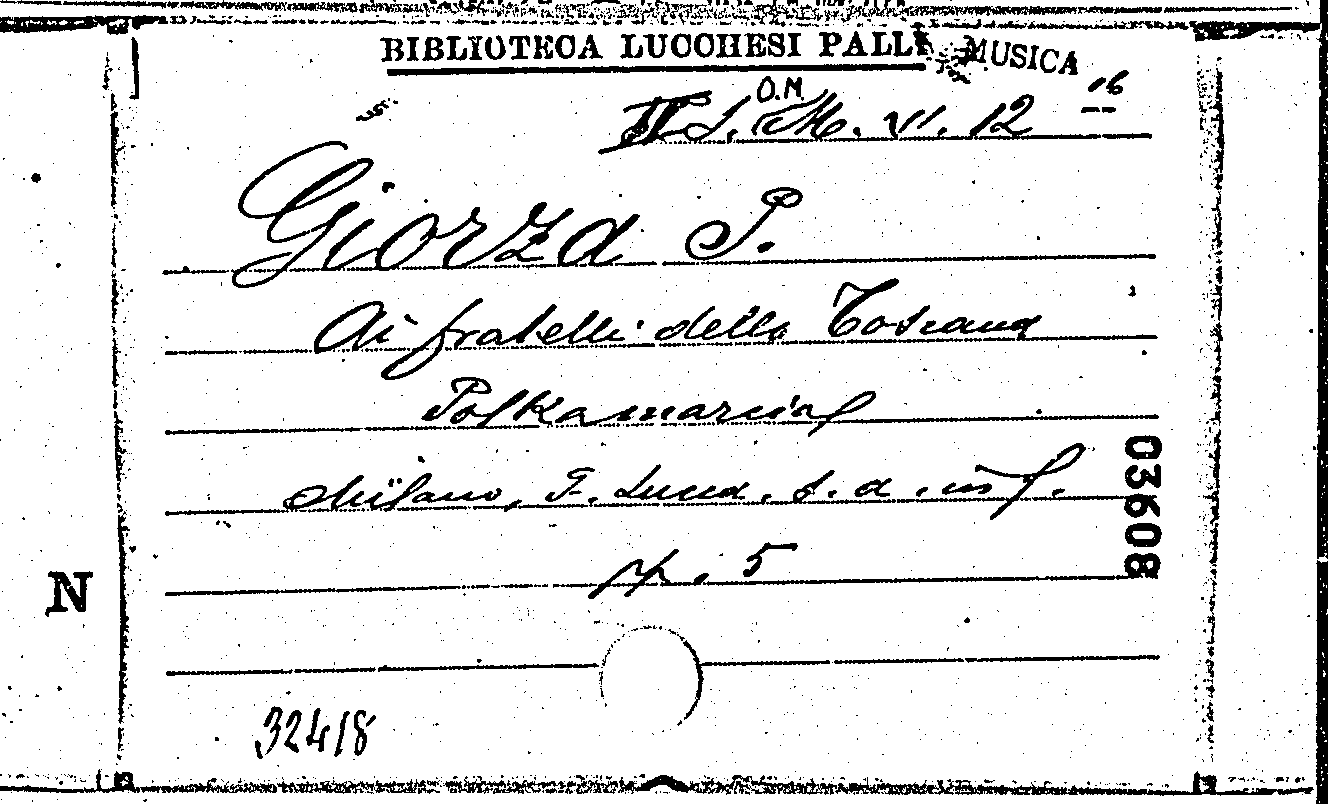 BIBLIOTECA LUCCHESI PALLI MUSICA
O.M. 16
L. M. VI. 12
Giorza P.
Ai fratelli della Toscana
Polka marcial
Milano, F. Lucca. s. d. in f.
p. 5
03608
N
32418